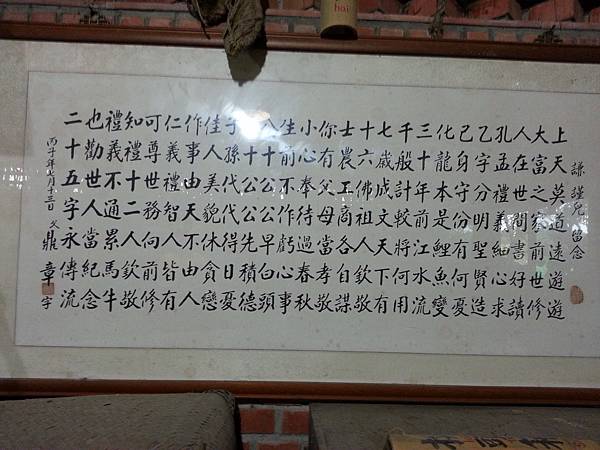 謙謹兄留念
上天莫道遠遊遊
大富之家前世修
人在世間書好讀
孔孟禮義細心求
乙字分明聖賢造
己身守份有何憂
化龍本是鯉魚變
三十年前江水流
千般計較將何用
七歲成文天下有
十六佛祖人欽敬
士農工商各自謀
你有父母當孝敬
小心奉待過春秋
生前不作虧心事
八十公公早白頭
十公公先積德
子孫代代得日憂
佳人美貌休貪戀
作事由天不由人
仁義禮智人皆有
可尊世務向前修
知禮十二人欽敬
禮義不通累馬牛
也勸世人當紀念
二十五字永傳流
丙子年七月十三日 文鼎章字
hai